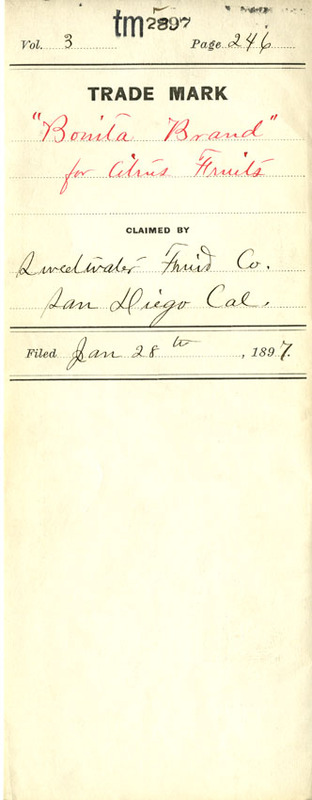 tm 2897
Vol. 3 Page 246
TRADE MARK
"Bonita Brand"
for Citrus Fruits
CLAIMED BY
Sweetwater Fruid Co.
San Diego Cal.
Filed Jan 28th, 1897.